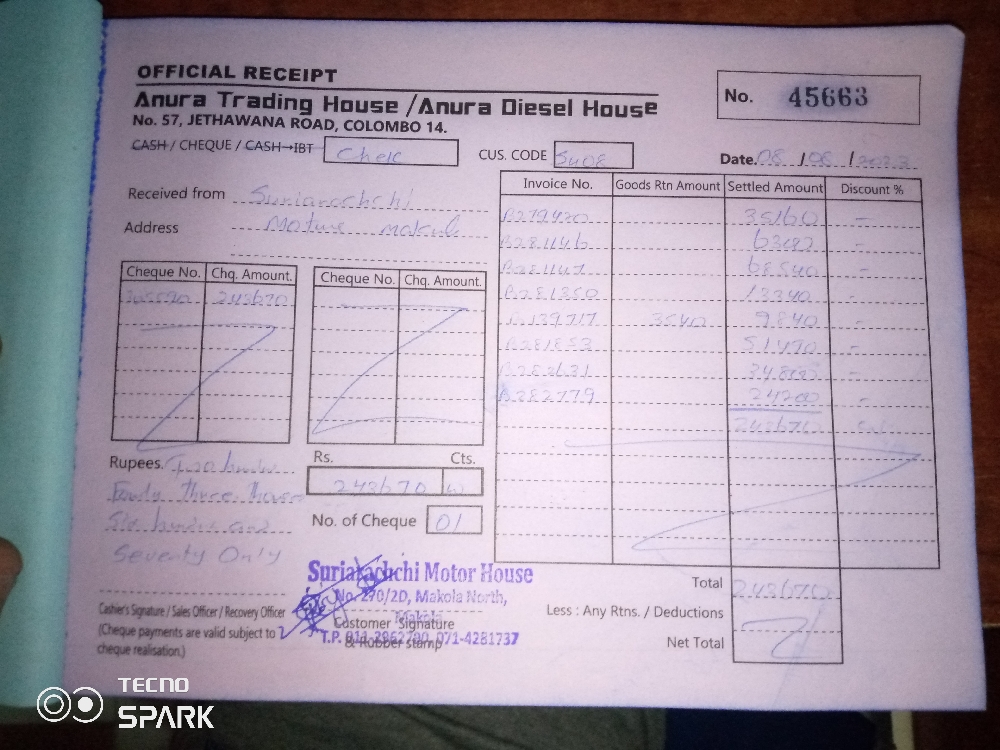 OFFICIAL RECEIPT
Anura Trading House /Anura Diesel House
No. 57, JETHAWANA ROAD, COLOMBO 14.
No. 45663
CASH / CHEQUE / CASH→IBT Chek
CUS. CODE SU08
Date. 08 / 08 /
Received from
Address Moture makul
Invoice No. Goods Rtn Amount Settled Amount Discount %
B279420 35160 -
B281146 -
B281147 68540 -
B281350 13340 -
B139717 3540 9840 -
B281853 51470 -
B282631 -
B282779 24200 -
243670
Cheque No. Chq. Amount. Cheque No. Chq. Amount.
243670
Rupees. Two
Fourty Three
Six and
Seventy Only
Rs. Cts.
243670
No. of Cheque 01
Total 243670
Less : Any Rtns. / Deductions
Net Total
Suriarachchi Motor House
No. 270/2D, Makola North,
Makola
T.P. 071-4281737
Cashier's Signature / Sales Officer / Recovery Officer
(Cheque payments are valid subject to
cheque realisation.)
Customer Signature
& Rubber stamp
TECNO
SPARK